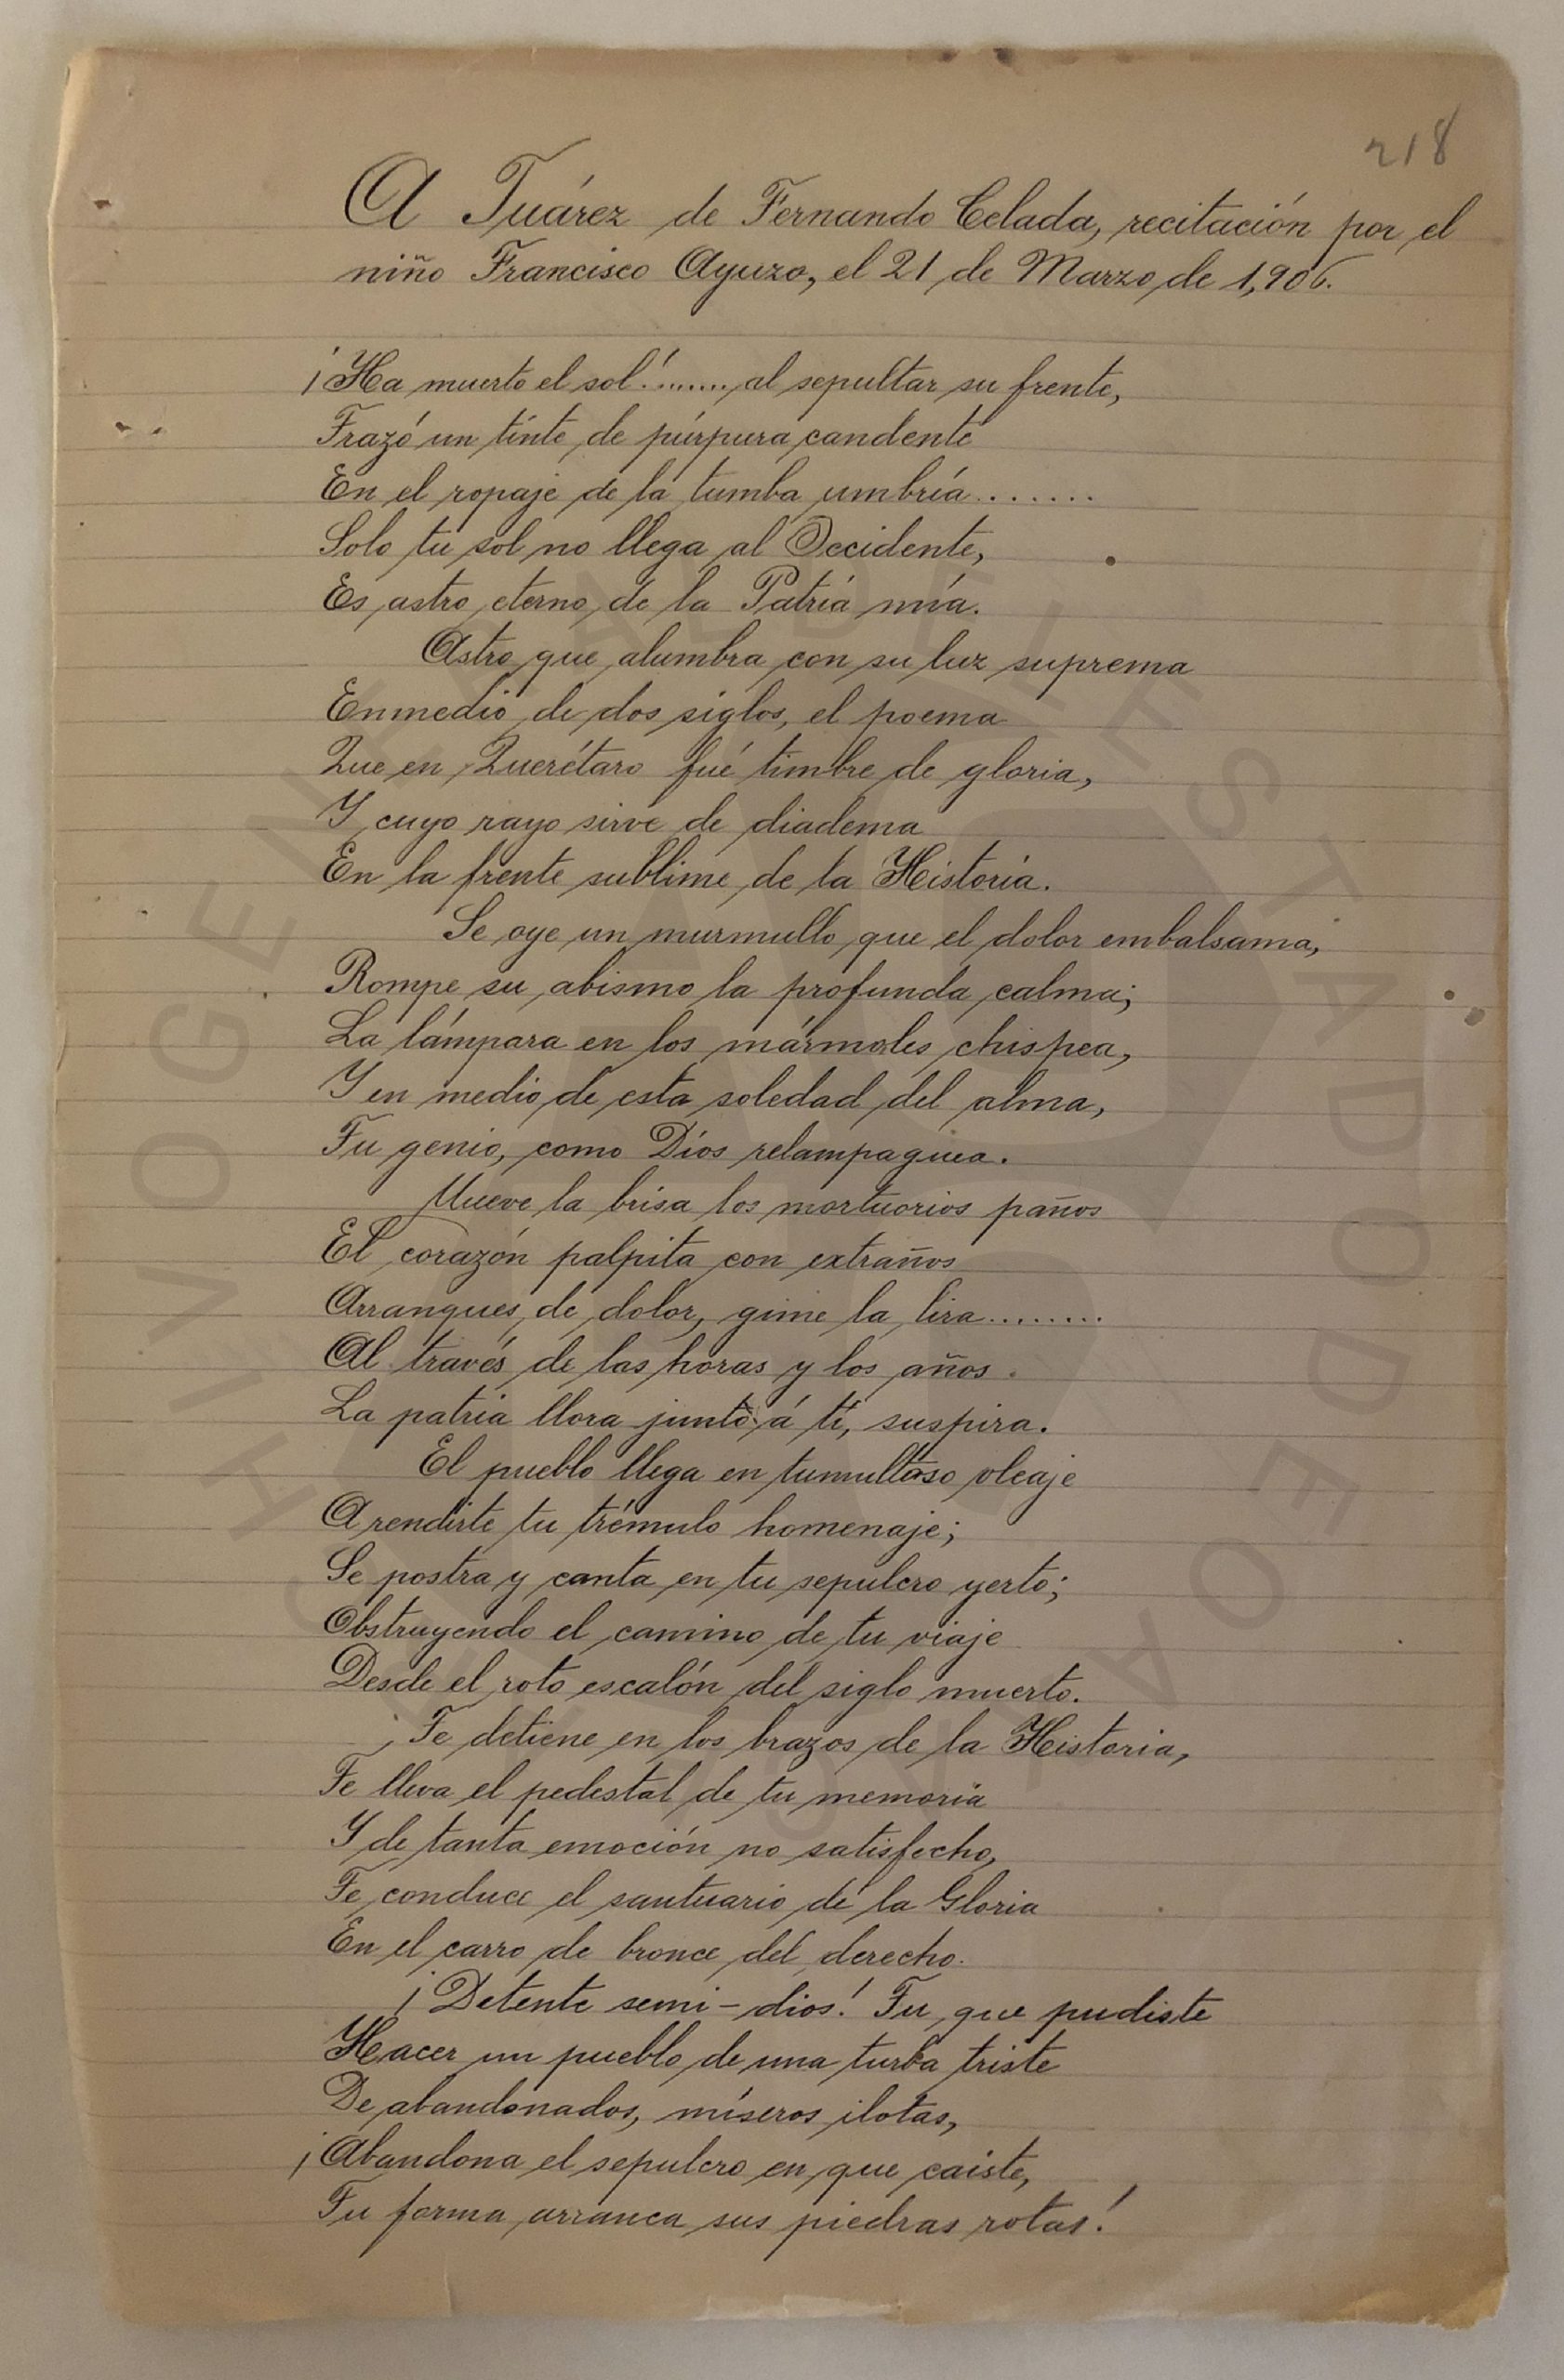 218
A Juárez de Fernando Celada, recitación por el
niño Francisco Ayuzo, el 21 de Marzo de 1,906.
¡Ha muerto el sol!........ al sepultar su frente,
Trazó un tinte de púrpura candente
En el ropaje de la tumba umbría.......
Solo tu sol no llega al Occidente,
Es astro eterno de la Patria mía.
Astro que alumbra con su luz suprema
Enmedio de dos siglos, el poema
Que en Querétaro fué timbre de gloria,
Y cuyo rayo sirve de diadema
En la frente sublime de la Historia.
Se oye un murmullo que el dolor embalsama,
Rompe su abismo la profunda calma;
La lámpara en los mármoles chispea,
Y en medio de esta soledad del alma,
Tu genio, como Dios relampaguea.
Mueve la brisa los mortuorios paños
El corazón palpita con extraños
Arranques de dolor, gime la lira........
Al través de las horas y los años.
La patria llora junto á tí, suspira.
El pueblo llega en tumultoso oleaje
A rendirte tu trémulo homenaje;
Se postra y canta en tu sepulcro yerto;
Obstruyendo el camino de tu viaje
Desde el roto escalón del siglo muerto.
¡Te detiene en los brazos de la Historia,
Te lleva el pedestal de tu memoria
Y de tanta emoción no satisfecho,
Te conduce el santuario de la Gloria
En el carro de bronce del derecho.
¡Detente semi-dios! Tu que pudiste
Hacer un pueblo de una turba triste
De abandonados, míseros ilotas,
¡Abandona el sepulcro en que caiste,
Tu forma arranca sus piedras rotas!